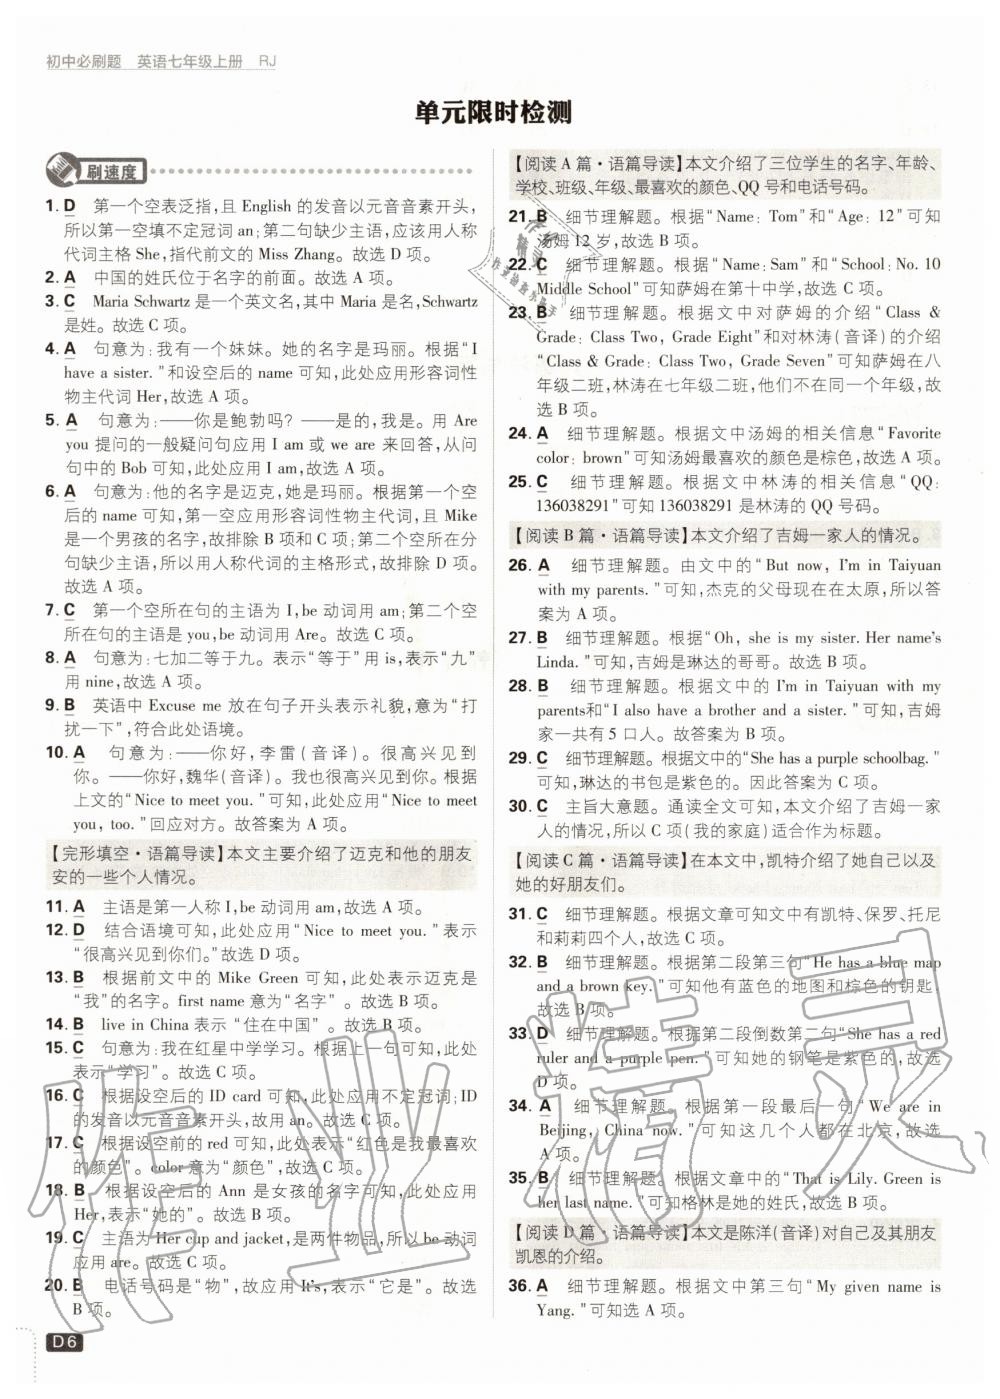 初中必刷题 英语七年级上册 RJ
单元限时检测
刷速度
1. D 第一个空表泛指,且 English 的发音以元音音素开头,
所以第一空填不定冠词 an;第二句缺少主语,应该用人称
代词主格 She,指代前文的 Miss Zhang。故选 D 项。
2. A 中国的姓氏位于名字的前面。故选 A 项。
3. C Maria Schwartz 是一个英文名,其中 Maria 是名,Schwartz
是姓。故选 C 项。
4. A 句意为:我有一个妹妹。她的名字是玛丽。根据“I
have a sister.”和设空后的 name 可知,此处应用形容词性
物主代词 Her,故选 A 项。
5. A 句意为:——你是鲍勃吗? ——是的,我是。用 Are
you 提问的一般疑问句应用 I am 或 we are 来回答,从问
句中的 Bob 可知,此处应用 I am,故选 A 项。
6. A 句意为:他的名字是迈克,她是玛丽。根据第一个空
后的 name 可知,第一空应用形容词性物主代词,且 Mike
是一个男孩的名字,故排除 B 项和 C 项;第二个空所在分
句缺少主语,所以用人称代词的主格形式,故排除 D 项。
故选 A 项。
7. C 第一个空所在句的主语为 I,be 动词用 am;第二个空
所在句的主语是 you,be 动词用 Are。故选 C 项。
8. A 句意为:七加二等于九。表示“等于”用 is,表示“九”
用 nine,故选 A 项。
9. B 英语中 Excuse me 放在句子开头表示礼貌,意为“打
扰一下”,符合此处语境。
10. A 句意为:——你好,李雷(音译)。很高兴见到
你。——你好,魏华(音译)。我也很高兴见到你。根据
上文的“Nice to meet you.”可知,此处应用“Nice to meet
you, too.”回应对方。故答案为 A 项。
【完形填空·语篇导读】本文主要介绍了迈克和他的朋友
安的一些个人情况。
11. A 主语是第一人称 I,be 动词用 am,故选 A 项。
12. D 结合语境可知,此处应用“Nice to meet you.”表示
“很高兴见到你们。”故选 D 项。
13. B 根据前文中的 Mike Green 可知,此处表示迈克是
“我”的名字。first name 意为“名字”。故选 B 项。
14. B live in China 表示“住在中国”。故选 B 项。
15. C 句意为:我在红星中学学习。根据上一句可知,此处
表示“学习”。故选 C 项。
16. C 根据设空后的 ID card 可知,此处应用不定冠词;ID
的发音以元音音素开头,故用 an。故选 C 项。
17. C 根据设空前的 red 可知,此处表示“红色是我最喜欢
的颜色”。color 意为“颜色”,故选 C 项。
18. B 根据设空后的 Ann 是女孩的名字可知,此处应用
Her,表示“她的”。故选 B 项。
19. C 主语为 Her cup and jacket,是两件物品,所以 be 动词
应用 are。故选 C 项。
20. B 电话号码是“物”,故应用 It's,表示“它是”。故选
B 项。
D6
【阅读 A 篇·语篇导读】本文介绍了三位学生的名字、年龄、
学校、班级、年级、最喜欢的颜色、QQ 号和电话号码。
21. B 细节理解题。根据“Name: Tom”和“Age: 12”可知
汤姆 12 岁,故选 B 项。
22. C 细节理解题。根据“Name: Sam”和“School: No. 10
Middle School”可知萨姆在第十中学,故选 C 项。
23. B 细节理解题。根据文中对萨姆的介绍“Class &
Grade: Class Two, Grade Eight”和对林涛(音译)的介绍
“Class & Grade: Class Two, Grade Seven”可知萨姆在八
年级二班,林涛在七年级二班,他们不在同一个年级,故
选 B 项。
24. A 细节理解题。根据文中汤姆的相关信息“Favorite
color: brown”可知汤姆最喜欢的颜色是棕色,故选 A 项。
25. C 细节理解题。根据文中林涛的相关信息“QQ:
136038291”可知 136038291 是林涛的 QQ 号码。
【阅读 B 篇·语篇导读】本文介绍了吉姆一家人的情况。
26. A 细节理解题。由文中的“But now, I'm in Taiyuan
with my parents.”可知,杰克的父母现在在太原,所以答
案为 A 项。
27. B 细节理解题。根据“Oh, she is my sister. Her name's
Linda.”可知,吉姆是琳达的哥哥。故选 B 项。
28. B 细节理解题。根据文中的 I'm in Taiyuan with my
parents和“I also have a brother and a sister.”可知,吉姆
家一共有 5 口人。故答案为 B 项。
29. C 细节理解题。根据文中的“She has a purple schoolbag.”
可知,琳达的书包是紫色的。因此答案为 C 项。
30. C 主旨大意题。通读全文可知,本文介绍了吉姆一家
人的情况,所以 C 项(我的家庭)适合作为标题。
【阅读 C 篇·语篇导读】在本文中,凯特介绍了她自己以及
她的好朋友们。
31. C 细节理解题。根据文章可知文中有凯特、保罗、托尼
和莉莉四个人,故选 C 项。
32. B 细节理解题。根据第二段第三句“He has a blue map
and a brown key.”可知他有蓝色的地图和棕色的钥匙,
故选 B 项。
33. D 细节理解题。根据第二段倒数第二句“She has a red
ruler and a purple pen.”可知她的钢笔是紫色的,故选
D 项。
34. A 细节理解题。根据第一段最后一句“We are in
Beijing, China now.”可知这几个人都在北京,故选
A 项。
35. B 细节理解题。根据文章中的“That is Lily. Green is
her last name.”可知格林是她的姓氏,故选 B 项。
【阅读 D 篇·语篇导读】本文是陈洋(音译)对自己及其朋友
凯恩的介绍。
36. A 细节理解题。根据文中第三句“My given name is
Yang.”可知选 A 项。
作业精灵